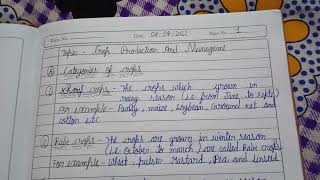 Page No.
Date: 08-04-2022
Page No. 1
Topic - Crop Production And Management
Categories of crops
Kharif crops - The crops which grown in
rainy season (i.e from June to septe)
For example - Paddy, maize, Soybean, Ground nut and
cotton etc.
Rabi crops - The crops are grown in winter season
(i.e October to march) are called Rabi crops
For example - Wheat, pulses Mustard, Pea and linseed